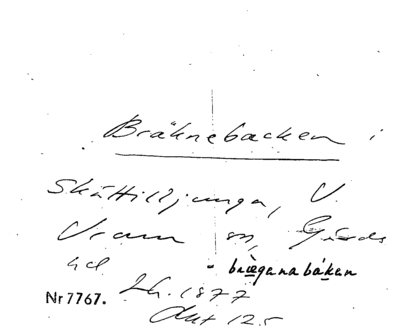 Bräknebacken i
Skättilljunga, V.
Vram sn, Gärds
hd. - bræganabákan
Nr 7767. Lh. 1877
Akt 125